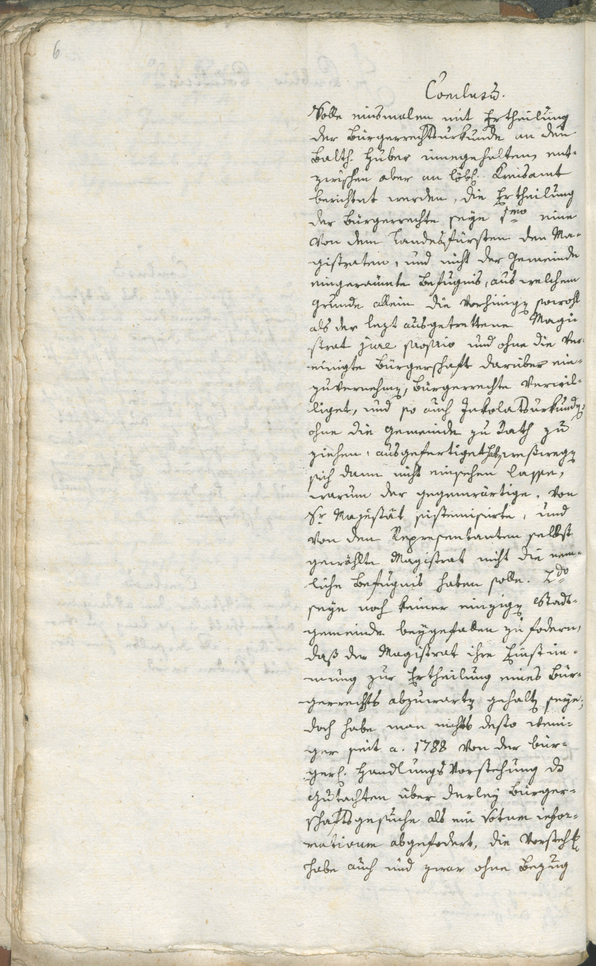 6
Conclusum.
Solle einsmalen mit Ertheilung
der Bürgerrechtsurkunde an den
Balth. Huber innegehalten, ent-
zwischen aber an löbl. Kreisamt
berichtet werden, die Ertheilung
der Bürgerrechte seye 1mo eine
von dem Landesfürsten den Ma-
gistraten, und nicht der Gemeinde
eingeraümte Befugnis, aus welchem
Grunde allein die vorhinige sowohl
als der lezt ausgetrettene Magi-
strat jure proprio und ohne die ver-
einigte Bürgerschaft darüber ein-
zuvernehmen, Bürgerrechte verwil-
liget, und so auch Inkolatsurkunden
ohne die Gemeinde zu Rath zu
ziehen, ausgefertiget, weßwegen
sich dann nicht einsehen lasse,
warum der gegenwärtige, von
Sr Majestät sistemisirte, und
von den Representanten selbst
gewählte Magistrat nicht die nem-
liche Befugnis haben solle. 2do
seye noch keiner einzigen Stadt-
gemeinde beygefallen zu fodern,
daß der Magistrat ihre Einstim-
mung zur Ertheilung eines Bür-
gerrechts abzuwarten gehalten seye;
doch habe man nichts desto weni-
ger seit a. 1788 von der bür-
gerl. Handlungsvorstehung das
Gutachten über derley Bürger-
schaftsgesuche als ein Votum infor-
mativum abgefodert, die Vorstehg
habe auch und zwar ohne Bezug